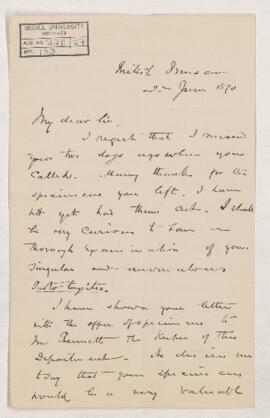 McGILL UNIVERSITY
ARCHIVES
ACC. NO.
REF.
British Museum
June 1870
My dear Sir,
I regret that I missed
you two days ago when you
called. Many thanks for the
specimens you left. I have
not yet had them cut. I should
be very curious to have a
thorough examination of your
singular and anomalous
I have shown your letter
with the offer of specimens to
Mr the Keeper of this
Department. He desires me
to say that your specimens
would be a very valuable